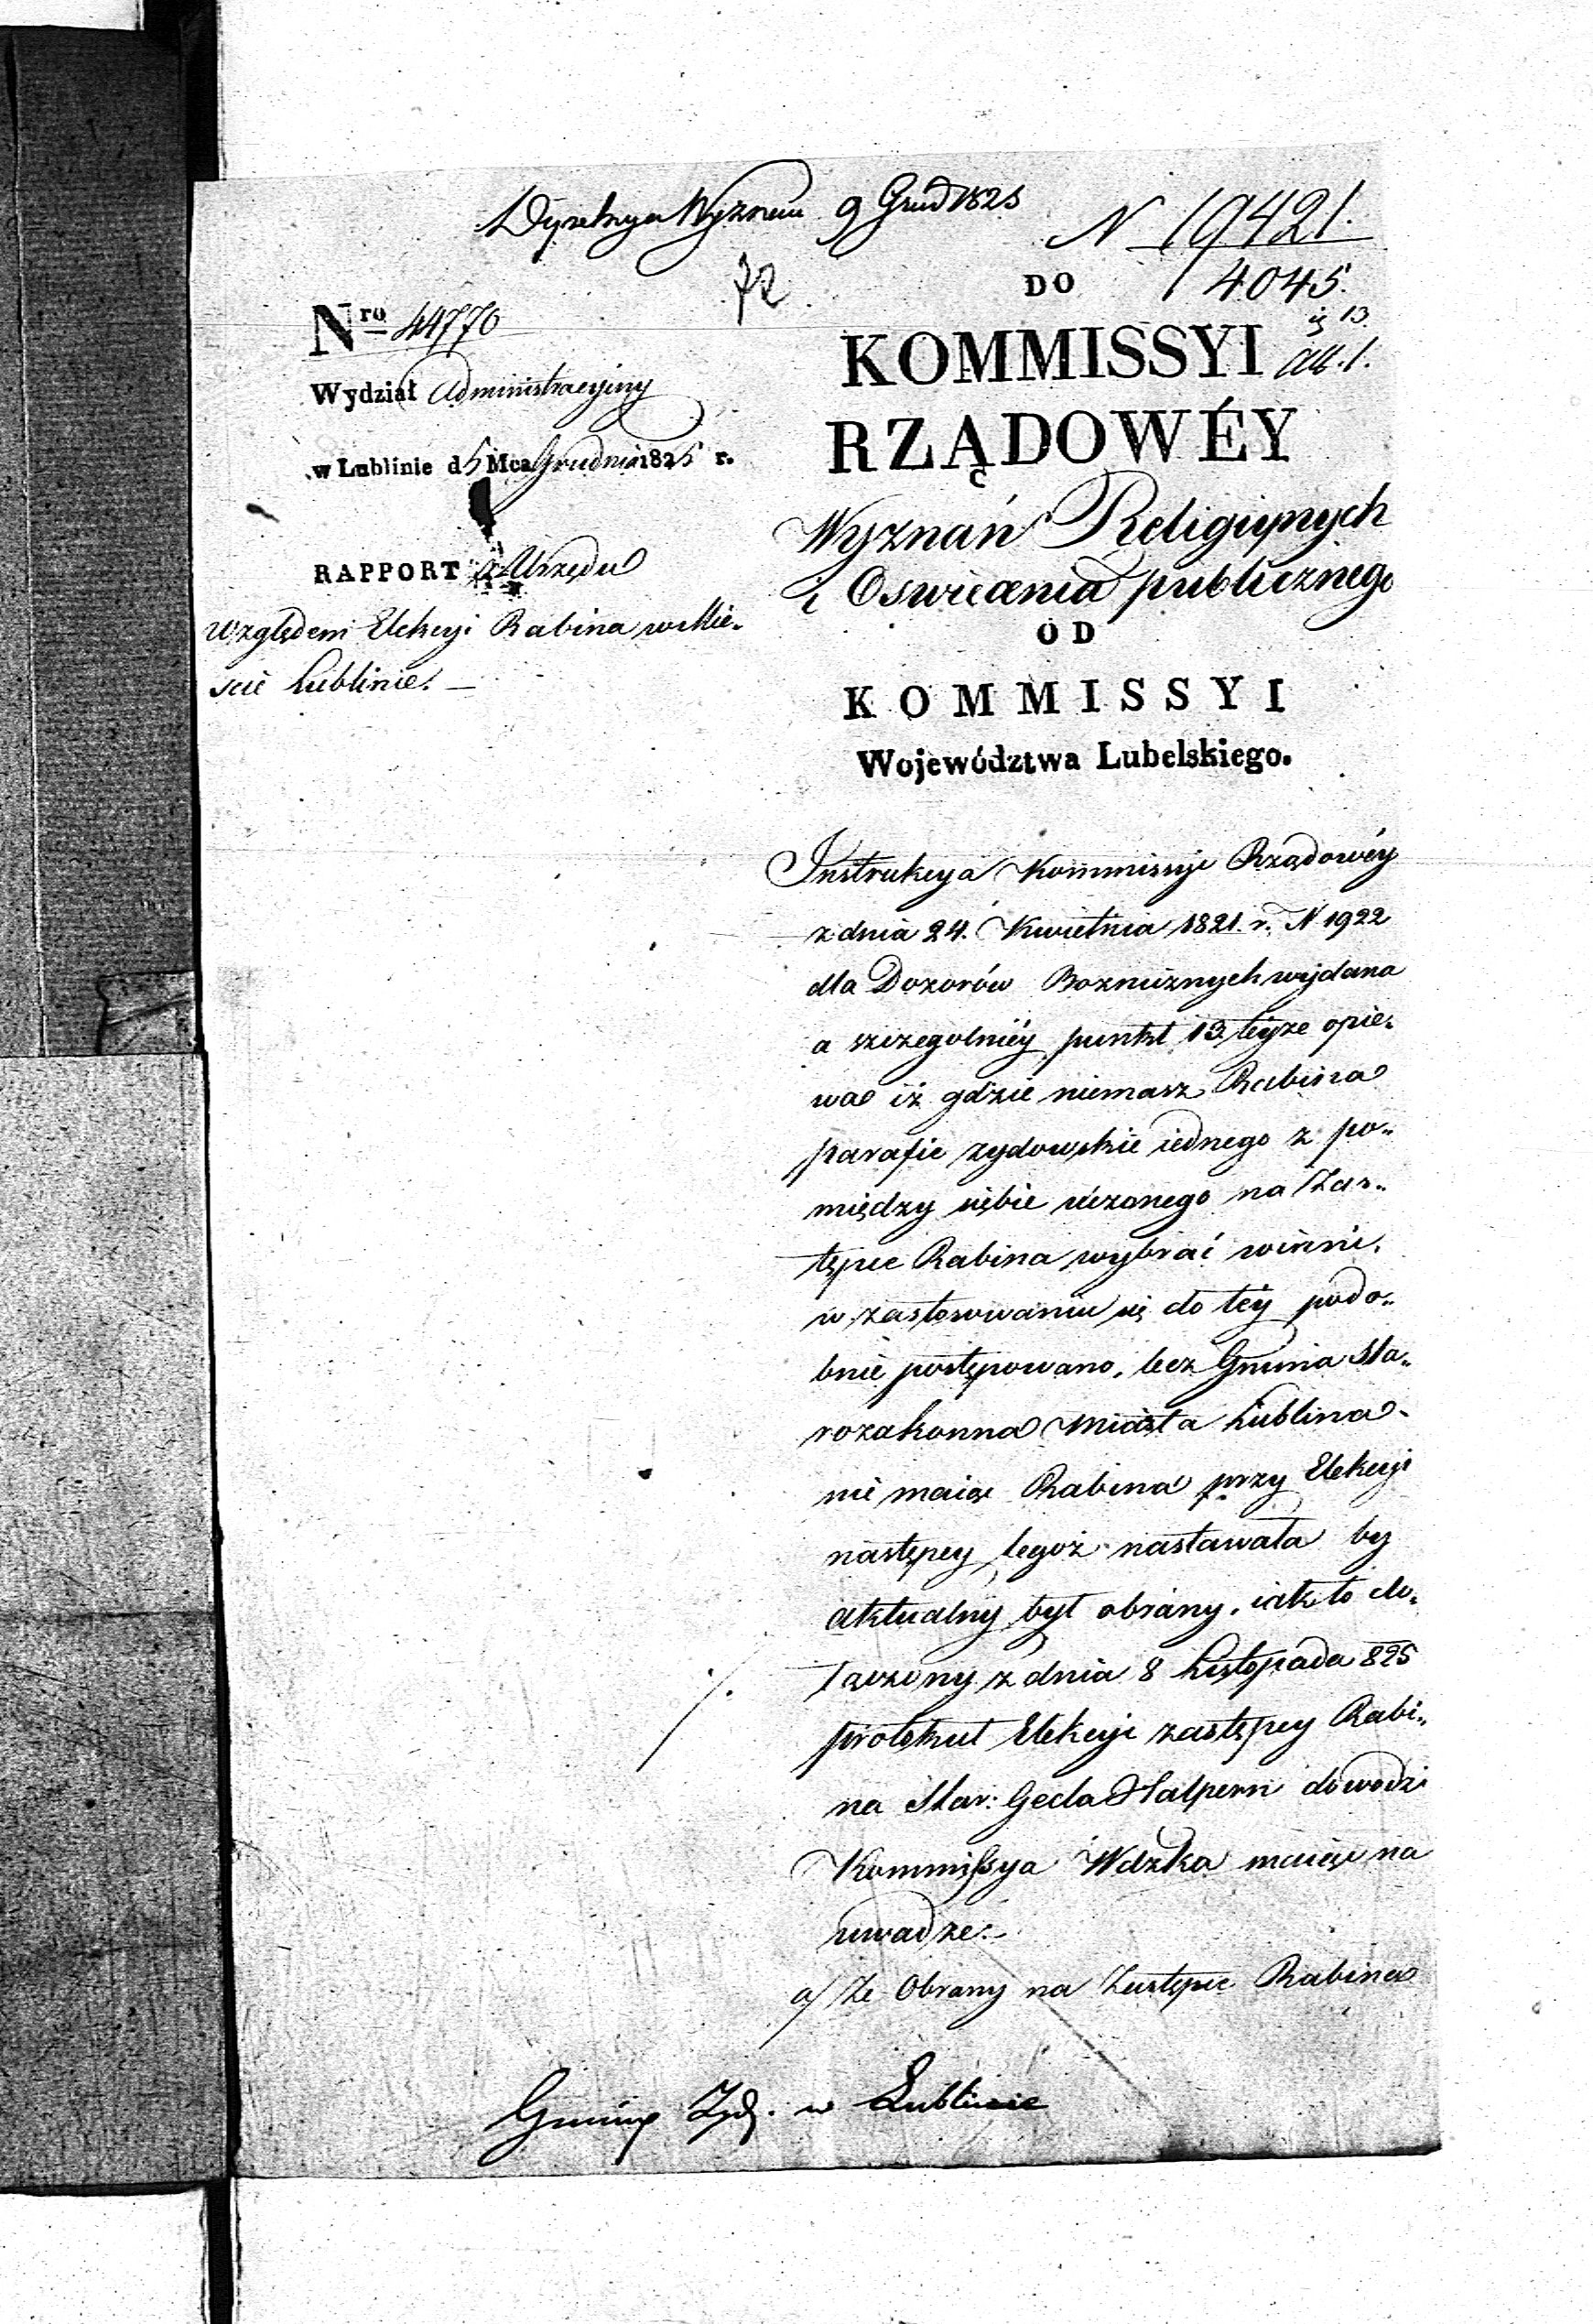 Dyrekcya Wyznań 9 Grud 1825
N 19421.
4045.
72
DO
Nro 44770
KOMMISSYI
Wydział Administracyiny
RZĄDOWÉY
w Lublinie d 5 Mca Grudnia 1825 r.
Wyznań Religiynych
RAPPORT z Urzędu
i Oswiecenia publicznego
względem Elekcyi Rabina w Mie-
OD
scie Lublinie. —
KOMMISSYI
Województwa Lubelskiego.
Instrukcya Kommissyi Rządowéy
z dnia 24. Kwietnia 1821. r. N 1922
dla Dozorów Boznicznych wydana
a szczegolniéy punkt 13 teyże opie-
wa iż gdzie niemasz Rabina
parafie zydowskie iednego z po-
między siebie uczonego na Zas-
tępce Rabina wybrać winni.
w zastosowaniu się do téy podo-
bnie postępowano, lecz Gmina Sta-
rozakonna Miasta Lublina
nie maiąc Rabina przy Elekcyi
następcy tegoż nastawała by
aktualny był obrany, iak to do-
łączony z dnia 8 Listopada 825
protokuł Elekcyi zastępcy Rabi-
na Star: Gecla Halpern dowodzi
Kommissya Wdzka maiąc na
uwadze.
a/ Ze Obrany na Zastępce Rabina
Gminy Żyd. w Lublinie